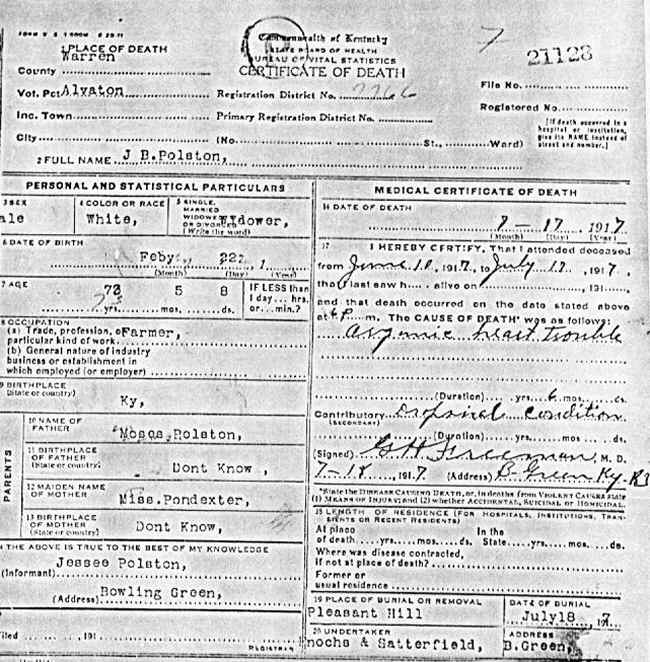 FORM V S 1
Commonwealth of Kentucky
STATE BOARD OF HEALTH
BUREAU OF VITAL STATISTICS
CERTIFICATE OF DEATH
7
21128
1 PLACE OF DEATH
Warren
County
Vot. Pct Alvaton
Registration District No. 7766
File No.
Inc. Town
Primary Registration District No.
Registered No.
City
(No. St., Ward)
[If death occurred in a hospital or institution, give its NAME instead of street and number.]
2 FULL NAME J B.Polston,
PERSONAL AND STATISTICAL PARTICULARS
3 SEX
ale
4 COLOR OR RACE
White,
5 SINGLE, MARRIED WIDOWED OR DIVORCED (Write the word)
Widower,
6 DATE OF BIRTH
Feby. 22, 1
(Month) (Day) (Year)
7 AGE
73 yrs. 5 mos. 8 ds.
IF LESS than 1 day... hrs. or... min.?
8 OCCUPATION
(a) Trade, profession, or particular kind of work Farmer,
(b) General nature of industry business or establishment in which employed (or employer)
9 BIRTHPLACE
(State or country)
Ky,
PARENTS
10 NAME OF FATHER
Moses Polston,
11 BIRTHPLACE OF FATHER
(State or country)
Dont Know,
12 MAIDEN NAME OF MOTHER
Miss.Pondexter,
13 BIRTHPLACE OF MOTHER
(State or country)
Dont Know,
THE ABOVE IS TRUE TO THE BEST OF MY KNOWLEDGE
(Informant) Jessee Polston,
(Address) Bowling Green,
Filed , 191
REGISTRAR
MEDICAL CERTIFICATE OF DEATH
16 DATE OF DEATH
7 - 17 , 1917
(Month) (Day) (Year)
17 I HEREBY CERTIFY, That I attended deceased
from June 10, 1917, to July 17, 1917,
that I last saw h... alive on , 191
and that death occurred on the date stated above
at 6 P. m. The CAUSE OF DEATH* was as follows:
organic heart trouble
(Duration) yrs. 6 mos. ds.
Contributory
(SECONDARY)
condition
(Duration) yrs. mos. ds.
(Signed) G H Freeman, M. D.
7-18, 1917 (Address) B. Green Ky. R3
*State the DISEASE CAUSING DEATH, or, in deaths from VIOLENT CAUSES state (1) MEANS OF INJURY; and (2) whether ACCIDENTAL, SUICIDAL or HOMICIDAL.
18 LENGTH OF RESIDENCE (FOR HOSPITALS, INSTITUTIONS, TRANSIENTS OR RECENT RESIDENTS)
At place of death yrs. mos. ds. In the State yrs. mos. ds.
Where was disease contracted,
if not at place of death?
Former or
usual residence
19 PLACE OF BURIAL OR REMOVAL
Pleasant Hill
DATE OF BURIAL
July18 7
20 UNDERTAKER
nochs & Satterfield,
ADDRESS
B.Green,